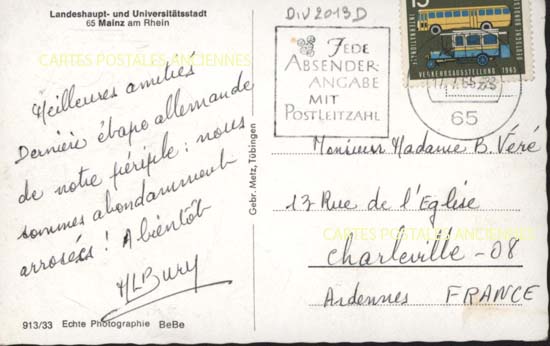 Landeshaupt- und Universitätsstadt
65 Mainz am Rhein
CARTES POSTALES ANCIENNES
Meilleures amitiés
Dernière étape allemande
de notre périple : nous
sommes abondamment
arrosés ! A bientôt
MLBury
913/33 Echte Photographie BeBe
Gebr. Metz, Tübingen
DIV 2013D
JEDE
ABSENDER-
ANGABE
MIT
POSTLEITZAHL
15
VERKEHRSAUSSTELLUNG 1965
DEUTSCHE BUNDESPOST
65
Monsieur Madame B. Véré
13 Rue de l'Eglise
CARTES POSTALES ANCIENNES
Charleville - 08
Ardennes FRANCE